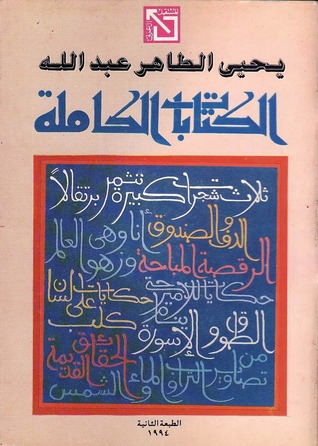 يحيى الطاهر عبد الله
الكتابات الكاملة
ثلاث شجرات كبيرة تثمر برتقالاً
الدف والصندوق أنا وهى وزهور العالم
الرقصة المباحة
حكايات للأمير حتى ينام حكايات على لسان كلب
الطوق والإسورة
الحقائق القديمة
تصاوير من التراب والماء والشمس
الطبعة الثانية
١٩٩٤